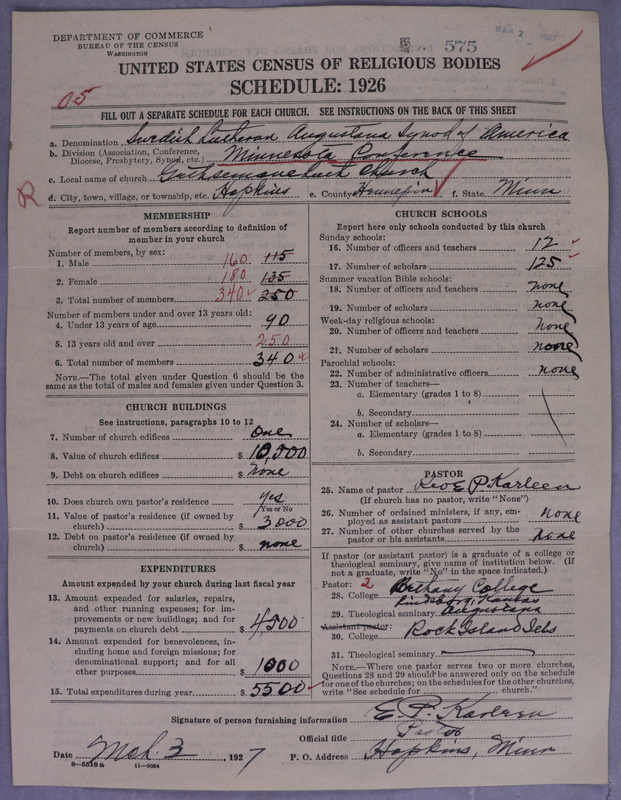 DEPARTMENT OF COMMERCE
BUREAU OF THE CENSUS
WASHINGTON
575
MAR 3 1927
UNITED STATES CENSUS OF RELIGIOUS BODIES
SCHEDULE: 1926
05
FILL OUT A SEPARATE SCHEDULE FOR EACH CHURCH. SEE INSTRUCTIONS ON THE BACK OF THIS SHEET
a. Denomination Swedish Lutheran Augustana Synod of America
b. Division (Association, Conference, Diocese, Presbytery, Synod, etc.) Minnesota Conference
c. Local name of church Gethsemane Luth Church
R
d. City, town, village, or township, etc. Hopkins e. County Hennepin f. State Minn
MEMBERSHIP
Report number of members according to definition of
member in your church
Number of members, by sex:
1. Male 160 115
2. Female 180 135
3. Total number of members 340 250
Number of members under and over 13 years old:
4. Under 13 years of age 90
5. 13 years old and over 250
6. Total number of members 340
NOTE.—The total given under Question 6 should be the
same as the total of males and females given under Question 3.
CHURCH BUILDINGS
See instructions, paragraphs 10 to 12
7. Number of church edifices One
8. Value of church edifices $ 10,000
9. Debt on church edifices $ None
10. Does church own pastor's residence yes
Yes or No
11. Value of pastor's residence (if owned by
church) $ 3000
12. Debt on pastor's residence (if owned by
church) $ none
EXPENDITURES
Amount expended by your church during last fiscal year
13. Amount expended for salaries, repairs,
and other running expenses; for im-
provements or new buildings; and for
payments on church debt $ 4,500
14. Amount expended for benevolences, in-
cluding home and foreign missions; for
denominational support; and for all
other purposes $ 1000
15. Total expenditures during year $ 5500
CHURCH SCHOOLS
Report here only schools conducted by this church
Sunday schools:
16. Number of officers and teachers 12
17. Number of scholars 125
Summer vacation Bible schools:
18. Number of officers and teachers none
19. Number of scholars none
Week-day religious schools:
20. Number of officers and teachers none
21. Number of scholars none
Parochial schools:
22. Number of administrative officers none
23. Number of teachers—
a. Elementary (grades 1 to 8)
b. Secondary
24. Number of scholars—
a. Elementary (grades 1 to 8)
b. Secondary
PASTOR
25. Name of pastor Rev E. P. Karleen
(If church has no pastor, write "None")
26. Number of ordained ministers, if any, em-
ployed as assistant pastors none
27. Number of other churches served by the
pastor or his assistants None
If pastor (or assistant pastor) is a graduate of a college or
theological seminary, give name of institution below. (If
not a graduate, write "No" in the space indicated.)
Pastor: 2
28. College Bethany College
Lindsborg, Kansas
29. Theological seminary Augustana
Assistant pastor:
30. College Rock Island Ills
31. Theological seminary
NOTE.—Where one pastor serves two or more churches,
Questions 28 and 29 should be answered only on the schedule
for one of the churches; on the schedules for the other churches,
write "See schedule for church."
Signature of person furnishing information E. P. Karleen
Official title Pastor
Date Mch. 3, 1927 P. O. Address Hopkins, Minn
8-5518 a 11-9054